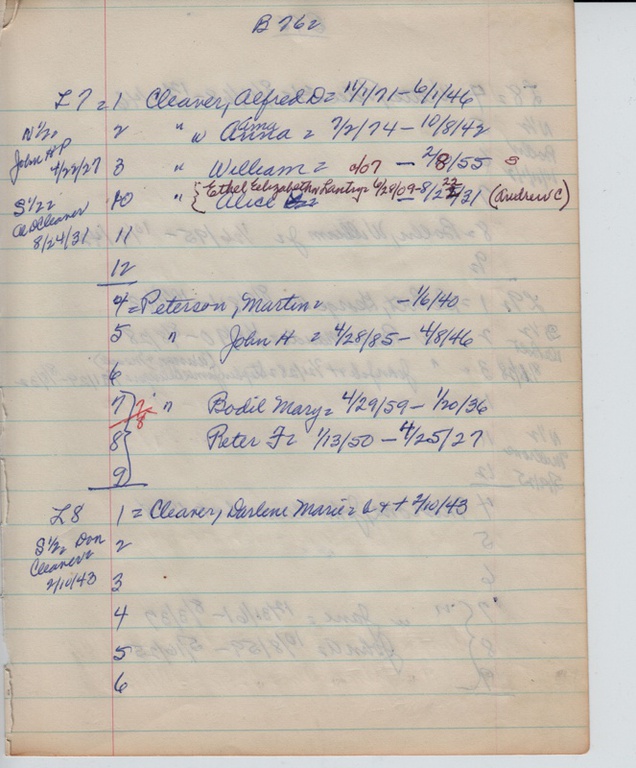 B 76=
L7 = 1 Cleaver, Alfred D = 11/1/71 - 6/1/46
N½= John H P 4/27/27
2 " w Anna = 7/2/74 - 10/8/42
Alma
3 " William = 0/07 - 2/8/55 S
S½= A D Cleaver 8/24/31
10 " Alice
{ Ethel Elizabeth Lantry = 4/28/09 - 8/22/31 (Andrew C)
11
12
4 = Peterson, Martin = - 1/6/40
5 " John H = 4/28/85 - 4/8/46
6
7 7/8 " Bodil Mary = 4/29/59 - 1/20/36
8 Peter F = 1/13/50 - 4/25/27
9
L8 1 = Cleaver, Darlene Marie = b + t 2/10/43
S½= Don Cleaver = 2/10/43
2
3
4
5
6